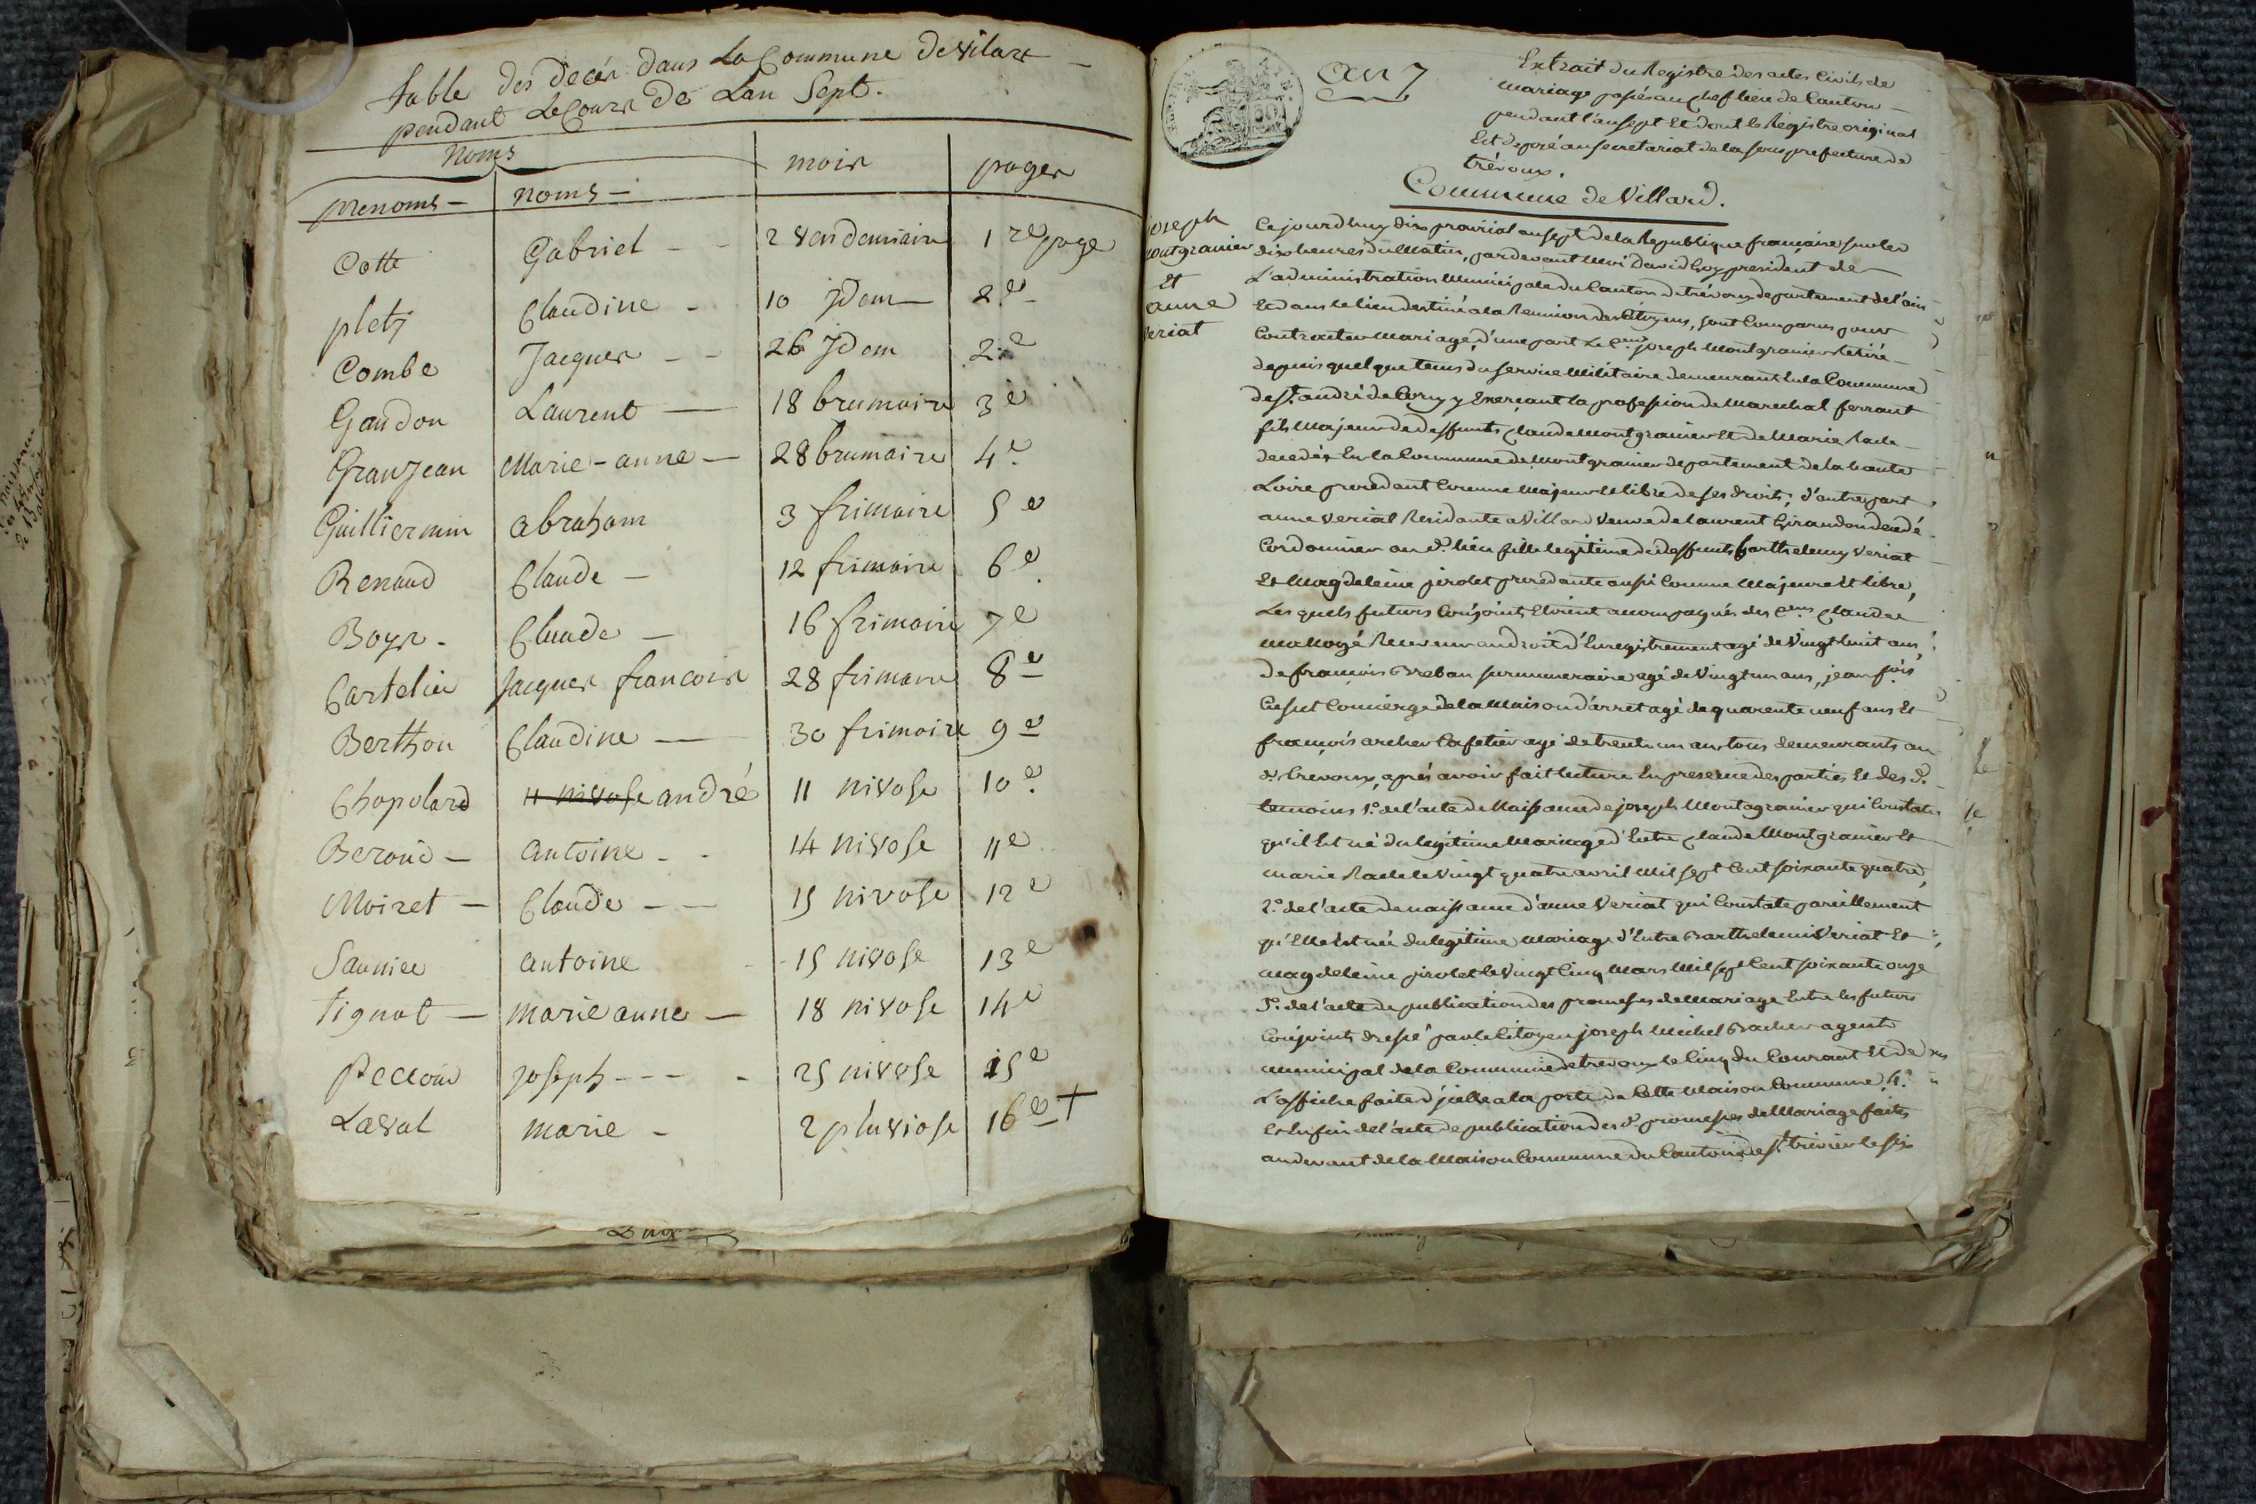 table des decér dans La Commune de vilare
pendant Le Cours de Lan Sept.
Noms
prenoms — noms — mois pages
Cotte Gabriel 2 vendemiaire 1re page
pletz Claudine 10 jdem 2e
Combe Jacques 26 jdem 2e
Gaudon Laurent 18 brumaire 3e
Granjean Marie-anne 28 brumaire 4e
Guilliermin abraham 3 frimaire 5e
Renaud Claude 12 frimaire 6e
Boyr Claude 16 frimaire 7e
Cartelier Jacques francois 28 frimaire 8e
Berthou Claudine 30 frimaire 9e
Chapolard 11 nivose andré 11 nivose 10e
Beroud antoine 14 nivose 11e
Moiret Claude 15 nivose 12e
Saunier antoine 15 nivose 13e
tignat marie anne 18 nivose 14e
joseph 25 nivose 15e
Laval marie 2 pluviose 16e +
an 7
Extrait du Registre des actes Civils de
mariage passés au chef lieu de Canton
pendant l'an sept Et dont le Registre original
Est deposé au secretariat de la sous prefecture de
trévoux.
Commune de Villard.
joseph
montgranier
Et
anne
veriat
Ce jourdhuy dix prairial an sept de la Republique française sur les
dix heures du Matin, pardevant Moi David Goy president de
L'administration Municipale du Canton de trévoux departement de l'ain
Et dans le lieu destiné a la Reunion des Citoyens, sont Comparus pour
Contracter Mariage, d'une part Le Cen joseph Montgranier Retiré
depuis quelque tems du service Militaire demeurant En la Commune
de St. andré de Corcy y Exerçant la profession de Marechal ferrant
fils Majeur de deffunts Claude Montgranier Et de Marie Rade
decedés En la Commune de Montgranier departement de la haute
Loire procedant Comme Majeur et libre de ses droits, d'autre part
anne veriat Residante a Villard Veuve de laurent Giraudon decedé
Cordonnier au d. lieu fille legitime de deffunts barthelemy Veriat
Et Magdeleine pirolet procedante aussi Comme Majeure Et libre,
Les quels futurs Conjoints Etoient accompagnés des Cens Claude
Receveur au droit d'Enregistrement agé de Vingt huit ans,
de françois Breban surnumeraire agé de Vingt un ans, jean
Concierge de la Maison d'arret agé de quarente neuf ans Et
françois archer Cafetier agé de trente un ans tous demeurants au
d. trevoux, aprés avoir fait lecture En presence des parties Et des d.
temoins 1° de l'acte de Naissance de joseph Montagranier qui Constate
qu'il Est né du legitime Mariage d'Entre Claude Montgranier Et
marie Rade le Vingt quatre avril Mil sept Cent soixante quatre,
2° de l'acte de naissance d'anne Veriat qui Constate pareillement
qu'Elle Est née du legitime Mariage d'Entre Barthelemi Veriat Et
magdeleine pirolet le Vingt Cinq Mars Mil sept Cent soixante onze
3° de l'acte de publication des promesses de Mariage Entre les futurs
Conjoints dressé par le Citoyen joseph Michel Bracher agent
municipal de la Commune de trevoux le Cinq du Courant Et de
L'affiche faite d'jcelle a la porte de Cette Maison Commune, 4°
Et Enfin de l'acte de publication des d. promesses de Mariage faites
au devant de la Maison Commune du Canton de St. trivier le six